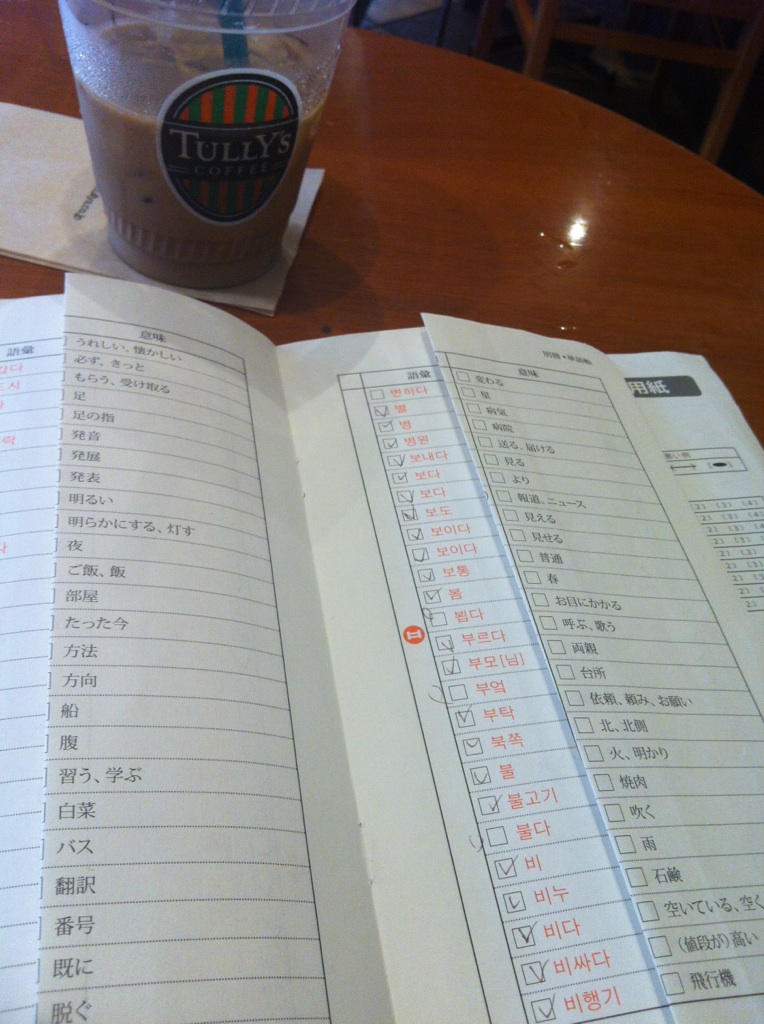 TULLY'S
COFFEE
語彙
意味
うれしい、懐かしい
必ず、きっと
もらう、受け取る
足
足の指
発音
発展
発表
明るい
明らかにする、灯す
夜
ご飯、飯
部屋
たった今
方法
方向
船
腹
習う、学ぶ
白菜
バス
翻訳
番号
既に
脱ぐ
別冊・単語帳
語彙
意味
변하다
変わる
별
星
병
病気
병원
病院
보내다
送る、届ける
보다
見る
보다
より
보도
報道、ニュース
보이다
見える
보이다
見せる
보통
普通
봄
春
뵙다
お目にかかる
부르다
呼ぶ、歌う
ㅂ
부모[님]
両親
부엌
台所
부탁
依頼、頼み、お願い
북쪽
北、北側
불
火、明かり
불고기
焼肉
불다
吹く
비
雨
비누
石鹸
비다
空いている、空く
비싸다
(値段が)高い
비행기
飛行機
用紙